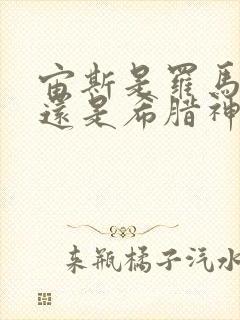 宙斯是羅馬
還是希腊神
来瓶橘子汽水